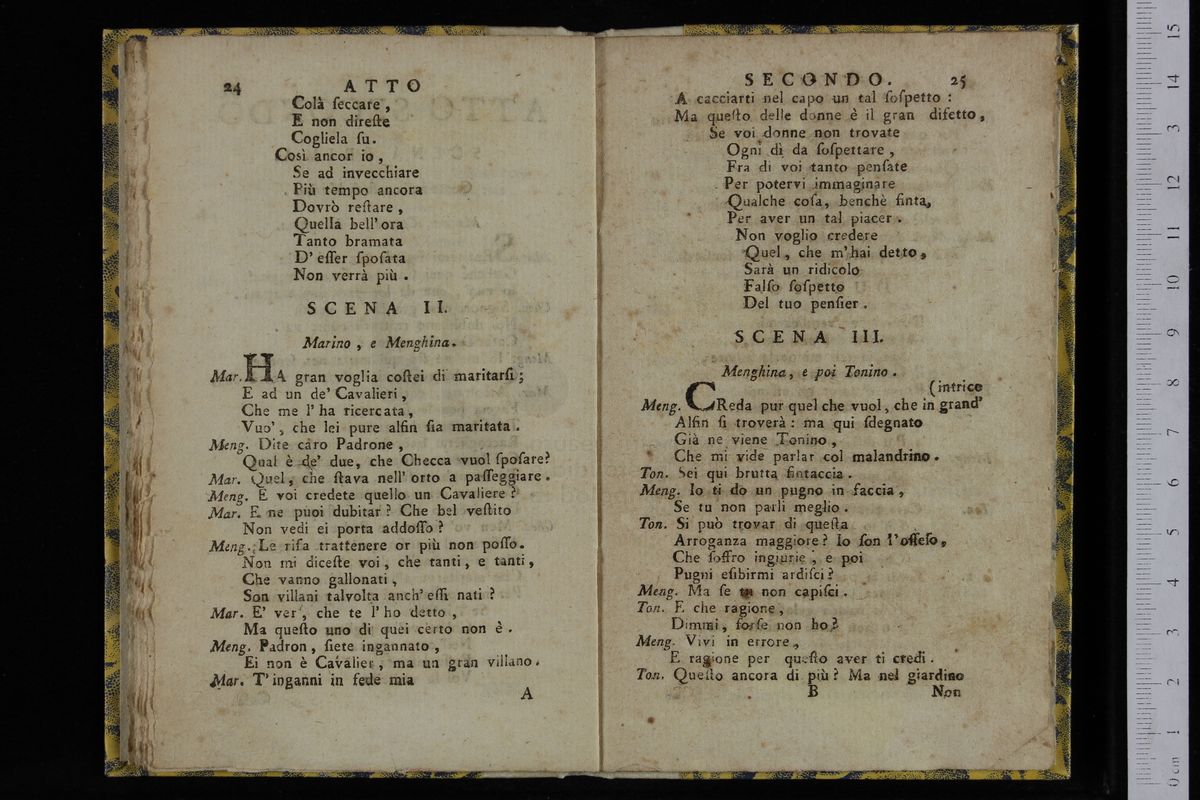 24 ATTO
Colà ſeccare,
E non direſte
Cogliela ſu.
Così ancor io,
Se ad invecchiare
Più tempo ancora
Dovrò reſtare,
Quella bell' ora
Tanto bramata
D' eſſer ſpoſata
Non verrà più.
SCENA II.
Marino, e Menghina.
Mar. HA gran voglia coſtei di maritarſi;
E ad un de' Cavalieri,
Che me l' ha ricercata,
Vuo', che lei pure alfin ſia maritata.
Meng. Dite caro Padrone,
Qual è de' due, che Checca vuol ſpoſare?
Mar. Quel, che ſtava nell' orto a paſſeggiare.
Meng. E voi credete quello un Cavaliere?
Mar. E ne puoi dubitar? Che bel veſtito
Non vedi ei porta addoſſo?
Meng. Le riſa trattenere or più non poſſo.
Non mi diceſte voi, che tanti, e tanti,
Che vanno gallonati,
Son villani talvolta anch' eſſi nati?
Mar. E' ver, che te l' ho detto,
Ma queſto uno di quei certo non è.
Meng. Padron, ſiete ingannato,
Ei non è Cavalier, ma un gran villano.
Mar. T' inganni in fede mia
A
SECONDO. 25
A cacciarti nel capo un tal ſoſpetto:
Ma queſto delle donne è il gran difetto,
Se voi donne non trovate
Ogni dì da ſoſpettare,
Fra di voi tanto penſate
Per potervi immaginare
Qualche coſa, benchè finta,
Per aver un tal piacer.
Non voglio credere
Quel, che m' hai detto,
Sarà un ridicolo
Falſo ſoſpetto
Del tuo penſier.
SCENA III.
Menghina, e poi Tonino.
(intrico
Meng. CReda pur quel che vuol, che in grand'
Alfin ſi troverà: ma qui ſdegnato
Già ne viene Tonino,
Che mi vide parlar col malandrino.
Ton. Sei qui brutta fintaccia.
Meng. Io ti do un pugno in faccia,
Se tu non parli meglio.
Ton. Si può trovar di queſta
Arroganza maggiore? Io ſon l'offeſo,
Che ſoffro ingiurie, e poi
Pugni eſibirmi ardiſci?
Meng. Ma ſe tu non capiſci.
Ton. E che ragione,
Dimmi, forſe non ho?
Meng. Vivi in errore,
E ragione per queſto aver ti credi.
Ton. Queſto ancora di più? Ma nel giardino
B Non
0 cm 1 2 3 4 5 6 7 8 9 10 11 12 13 14 15